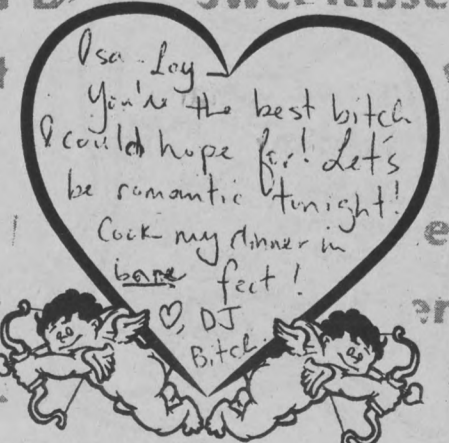 Isa-Loy –
You're the best bitch
I could hope for! Let's
be romantic tonight!
Cook my dinner in
bare feet!
♡, DJ
Bitch.